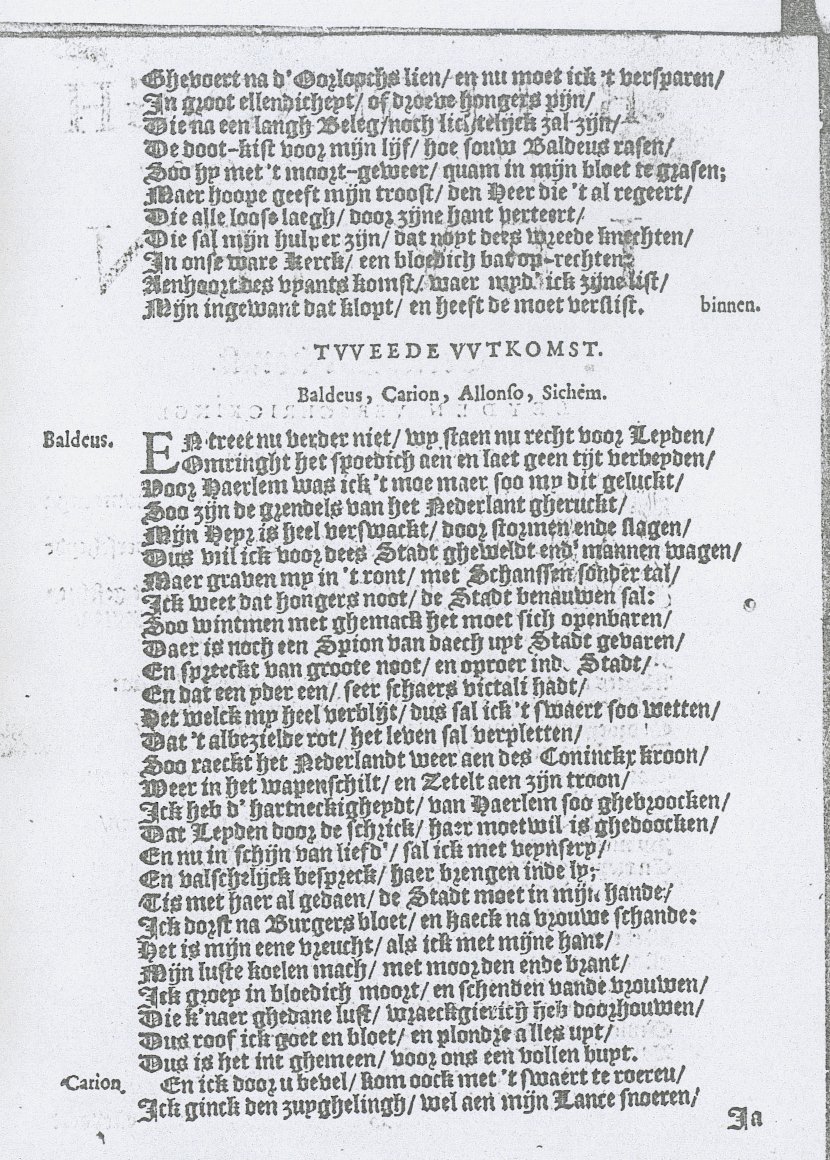 Ghevoert na d'Oorloochs lien/ en nu moet ick 't versparen/
In groot ellendicheyt/ of droeve hongers pijn/
Die na een langh Beleg/ noch lichtelijck zal zijn/
De doot-kist voor mijn lijf/ hoe souw Baldeus rasen/
Soo hy met 't moort-geweer/ quam in mijn bloet te grasen;
Maer hoope geeft mijn troost/ den Heer die 't al regeert/
Die alle loose laegh/ door zijne hant verteert/
Die sal mijn hulper zijn/ dat noyt dees wreede knechten/
In onse ware Kerck/ een bloedich bat op-rechten:
Aenhoort des vyants komst/ waer myd' ick zijne list/
Mijn ingewant dat klopt/ en heeft de moet verslist. binnen.
TVVEEDE VVTKOMST.
Baldeus, Carion, Allonso, Sichem.
Baldeus. EN treet nu verder niet/ wy staen nu recht voor Leyden/
Omringht het spoedich aen en laet geen tijt verbeyden/
Voor Haerlem was ick 't moe maer soo my dit geluckt/
Soo zijn de grendels van het Nederlant gheruckt/
Mijn Heyr is heel verswackt/ door stormen ende slagen/
Dus wil ick voor dees Stadt gheweldt end' mannen wagen/
Maer graven my in 't ront/ met Schanssen sonder tal/
Ick weet dat hongers noot/ de Stadt benauwen sal:
Soo wintmen met ghemack het moet sich openbaren/
Daer is noch een Spion van daech uyt Stadt gevaren/
En spreeckt van groote noot/ en oproer ind. Stadt/
En dat een yder een/ seer schaers victali hadt/
Het welck my heel verblijt/ dus sal ick 't swaert soo wetten/
Dat 't albezielde rot/ het leven sal verpletten/
Soo raeckt het Nederlandt weer aen des Coninckx kroon/
Weer in het wapenschilt/ en Zetelt aen zijn troon/
Ick heb d' hartneckigheydt/ van Haerlem soo ghebroocken/
Dat Leyden door de schrick/ haer moetwil is ghedoocken/
En nu in schijn van liefd'/ sal ick met veynsery/
En valschelijck bespreck/ haer brengen inde ly;
Tis met haer al gedaen/ de Stadt moet in mijn hande/
Ick dorst na Burgers bloet/ en haeck na vrouwe schande:
Het is mijn eene vreucht/ als ick met mijne hant/
Mijn luste koelen mach/ met moorden ende brant/
Ick groey in bloedich moort/ en schenden vande vrouwen/
Die k'naer ghedane lust/ wraeckgierich heb doorhouwen/
Dus roof ick goet en bloet/ en plondre alles uyt/
Dus is het int ghemeen/ voor ons een vollen buyt.
Carion. En ick door u bevel/ kom oock met 't swaert te roeren/
Ick ginck den zuyghelingh/ wel aen mijn Lance snoeren/
Ja